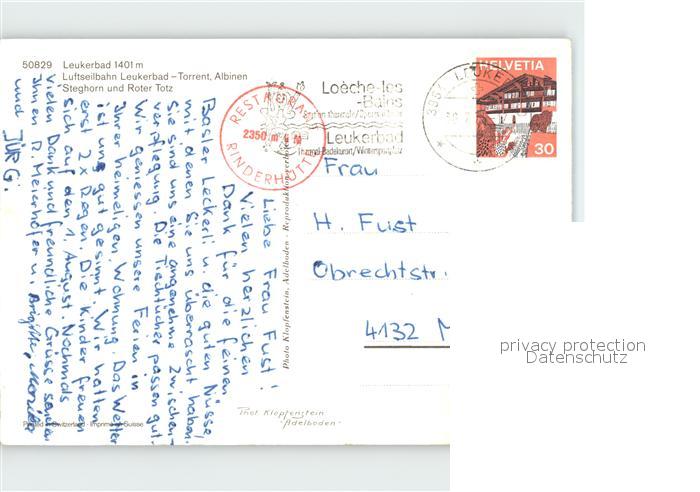 50829 Leukerbad 1401 m
Luftseilbahn Leukerbad – Torrent, Albinen
Steghorn und Roter Totz
Liebe Frau Fust!
Vielen herzlichen
Dank für die feinen
Basler Leckerli u. die guten Nüsse
mit denen Sie uns überrascht haben.
Sie sind uns eine angenehme Zwischen-
verpflegung. Die Tischtücher passen gut.
Wir geniessen unsere Ferien in
Ihrer heimeligen Wohnung. Das Wetter
ist uns gut gesinnt. Wir hatten
erst 2x Regen. Die Kinder freuen
sich auf den 1. August. Nochmals
vielen Dank und freundliche Grüsse senden
Ihnen R. Meierhofer u. Brigitte,
und JÜRG.
RESTAURANT
2350 m
RINDERHÜTTE
Loèche-les
-Bains
Leukerbad
Thermal-Badekurort/Wintersportplatz
3954 LEUKERBAD
HELVETIA
30
Frau
H. Fust
Obrechtstr.
4132 M
Photo Klopfenstein, Adelboden - Reproduktion verboten
Phot. Klopfenstein
"Adelboden"
Printed in Switzerland - Imprimé en Suisse
privacy protection
Datenschutz